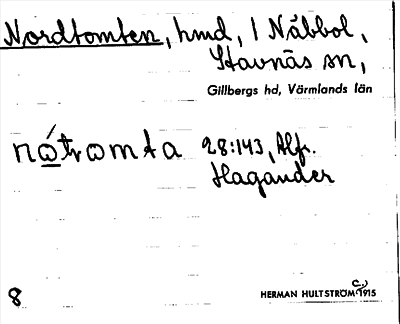 Nordtomten, hmd, 1 Näbbol,
Stavnäs sn,
Gillbergs hd, Värmlands län
nótromta 28:143, Alfr.
Hagander
8
HERMAN HULTSTRÖM C:a 1915